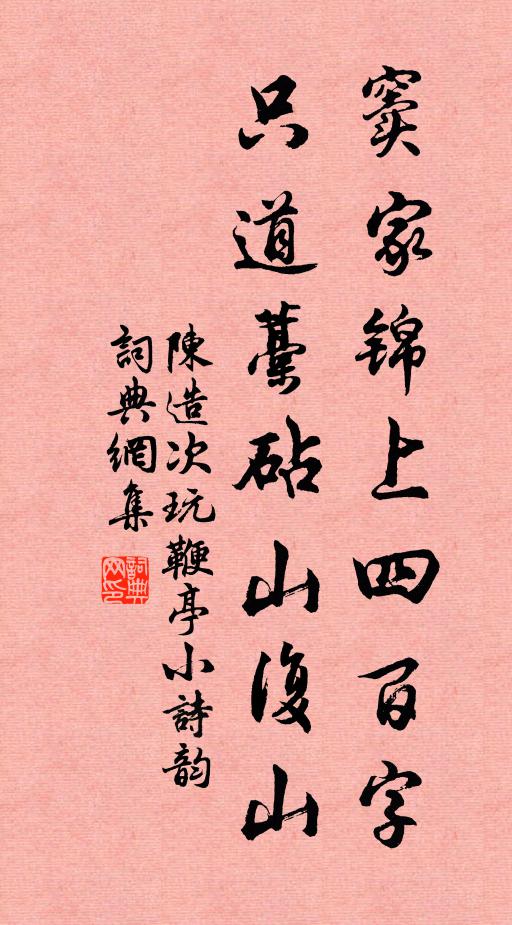 窦家锦上四百字
只道藁砧山復山
陳造次玩鞭亭小詩韵
詞典網集
詞典网印